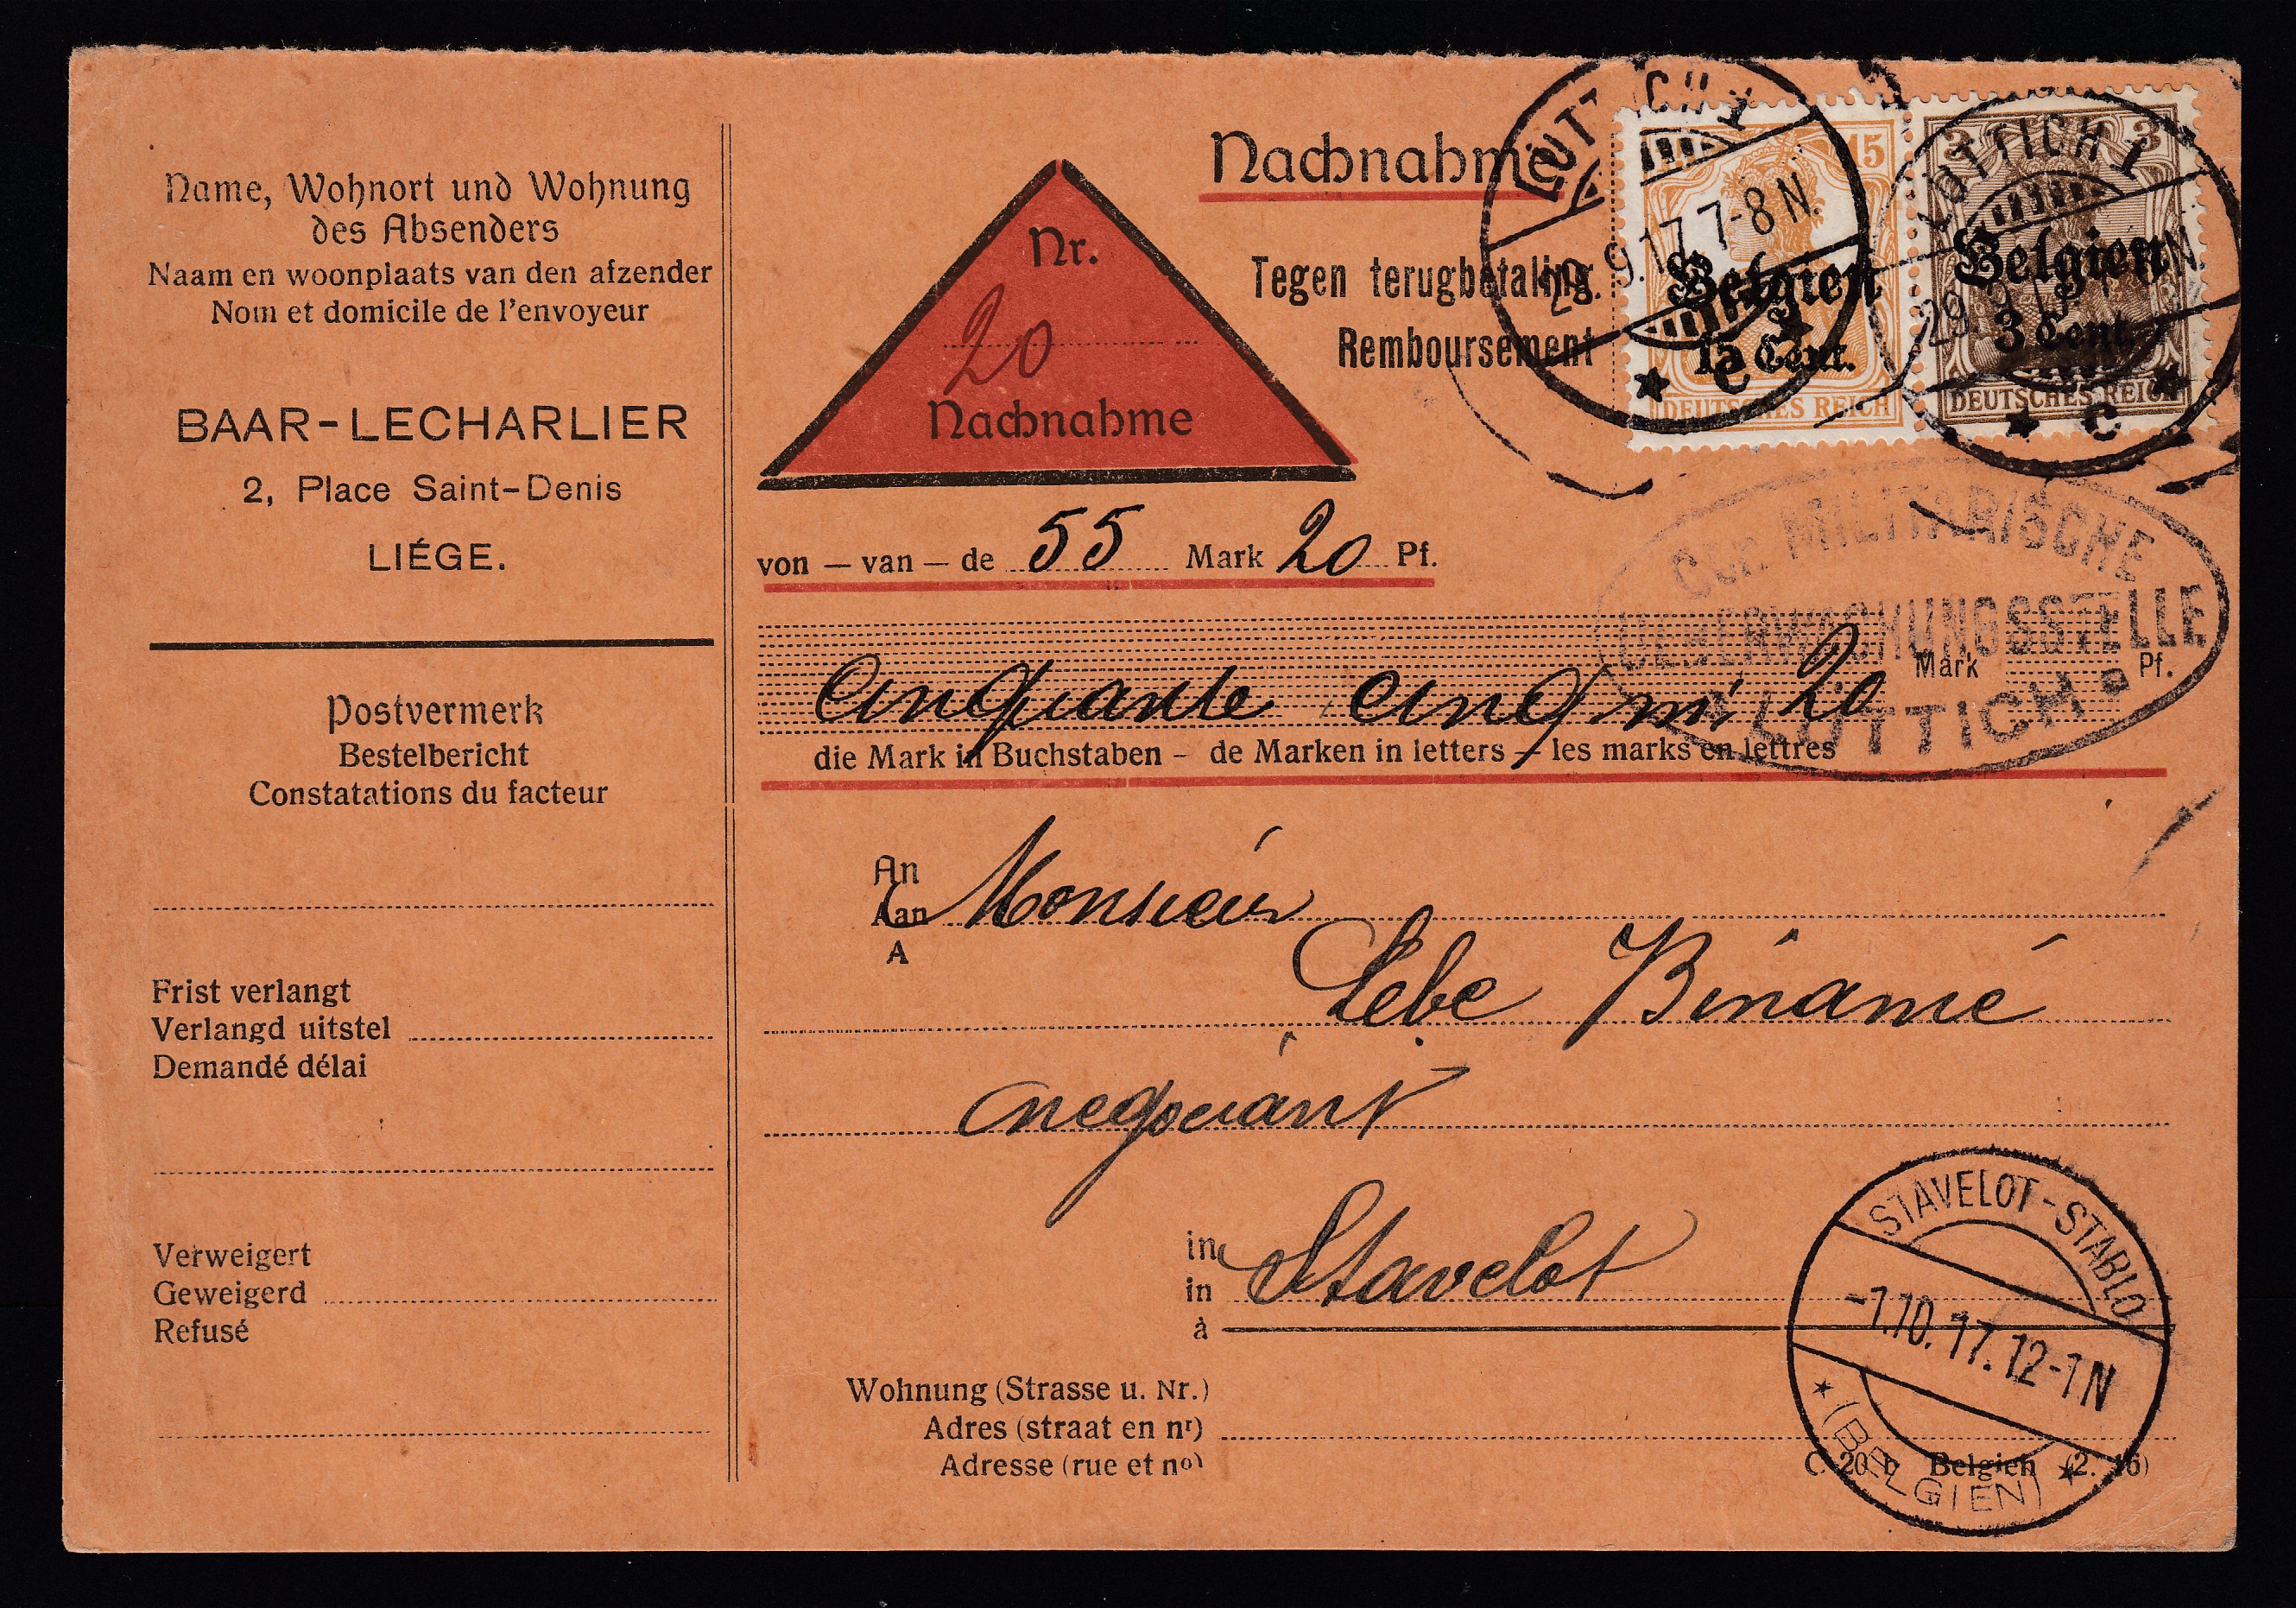 Name, Wohnort und Wohnung
des Absenders
Naam en woonplaats van den afzender
Nom et domicile de l'envoyeur
BAAR-LECHARLIER
2, Place Saint-Denis
LIÉGE.
Postvermerk
Bestelbericht
Constatations du facteur
Frist verlangt
Verlangd uitstel
Demandé délai
Verweigert
Geweigerd
Refusé
Nr.
20
Nachnahme
Nachnahme
Tegen terugbetaling
Remboursement
LÜTTICH 1
29.9.17.7-8 N.
c
15
Belgien
15 Cent.
DEUTSCHES REICH
LÜTTICH 1
29.9.17.7-8 N.
c
3 3
Belgien
3 Cent.
DEUTSCHES REICH
MILITÄRISCHE
UEBERWACHUNGSSTELLE
LÜTTICH
von – van – de 55 Mark 20 Pf.
Cinquante cinq m 20 Mark Pf.
die Mark in Buchstaben – de Marken in letters – les marks en lettres
An
Aan Monsieur
A
Lebe Binamé
negociant
in
in Stavelot
à
Wohnung (Strasse u. Nr.)
Adres (straat en nr)
Adresse (rue et no)
STAVELOT-STABLO
-1.10.17.12-1N
(BELGIEN)
C. 20 b Belgien (2. 16)